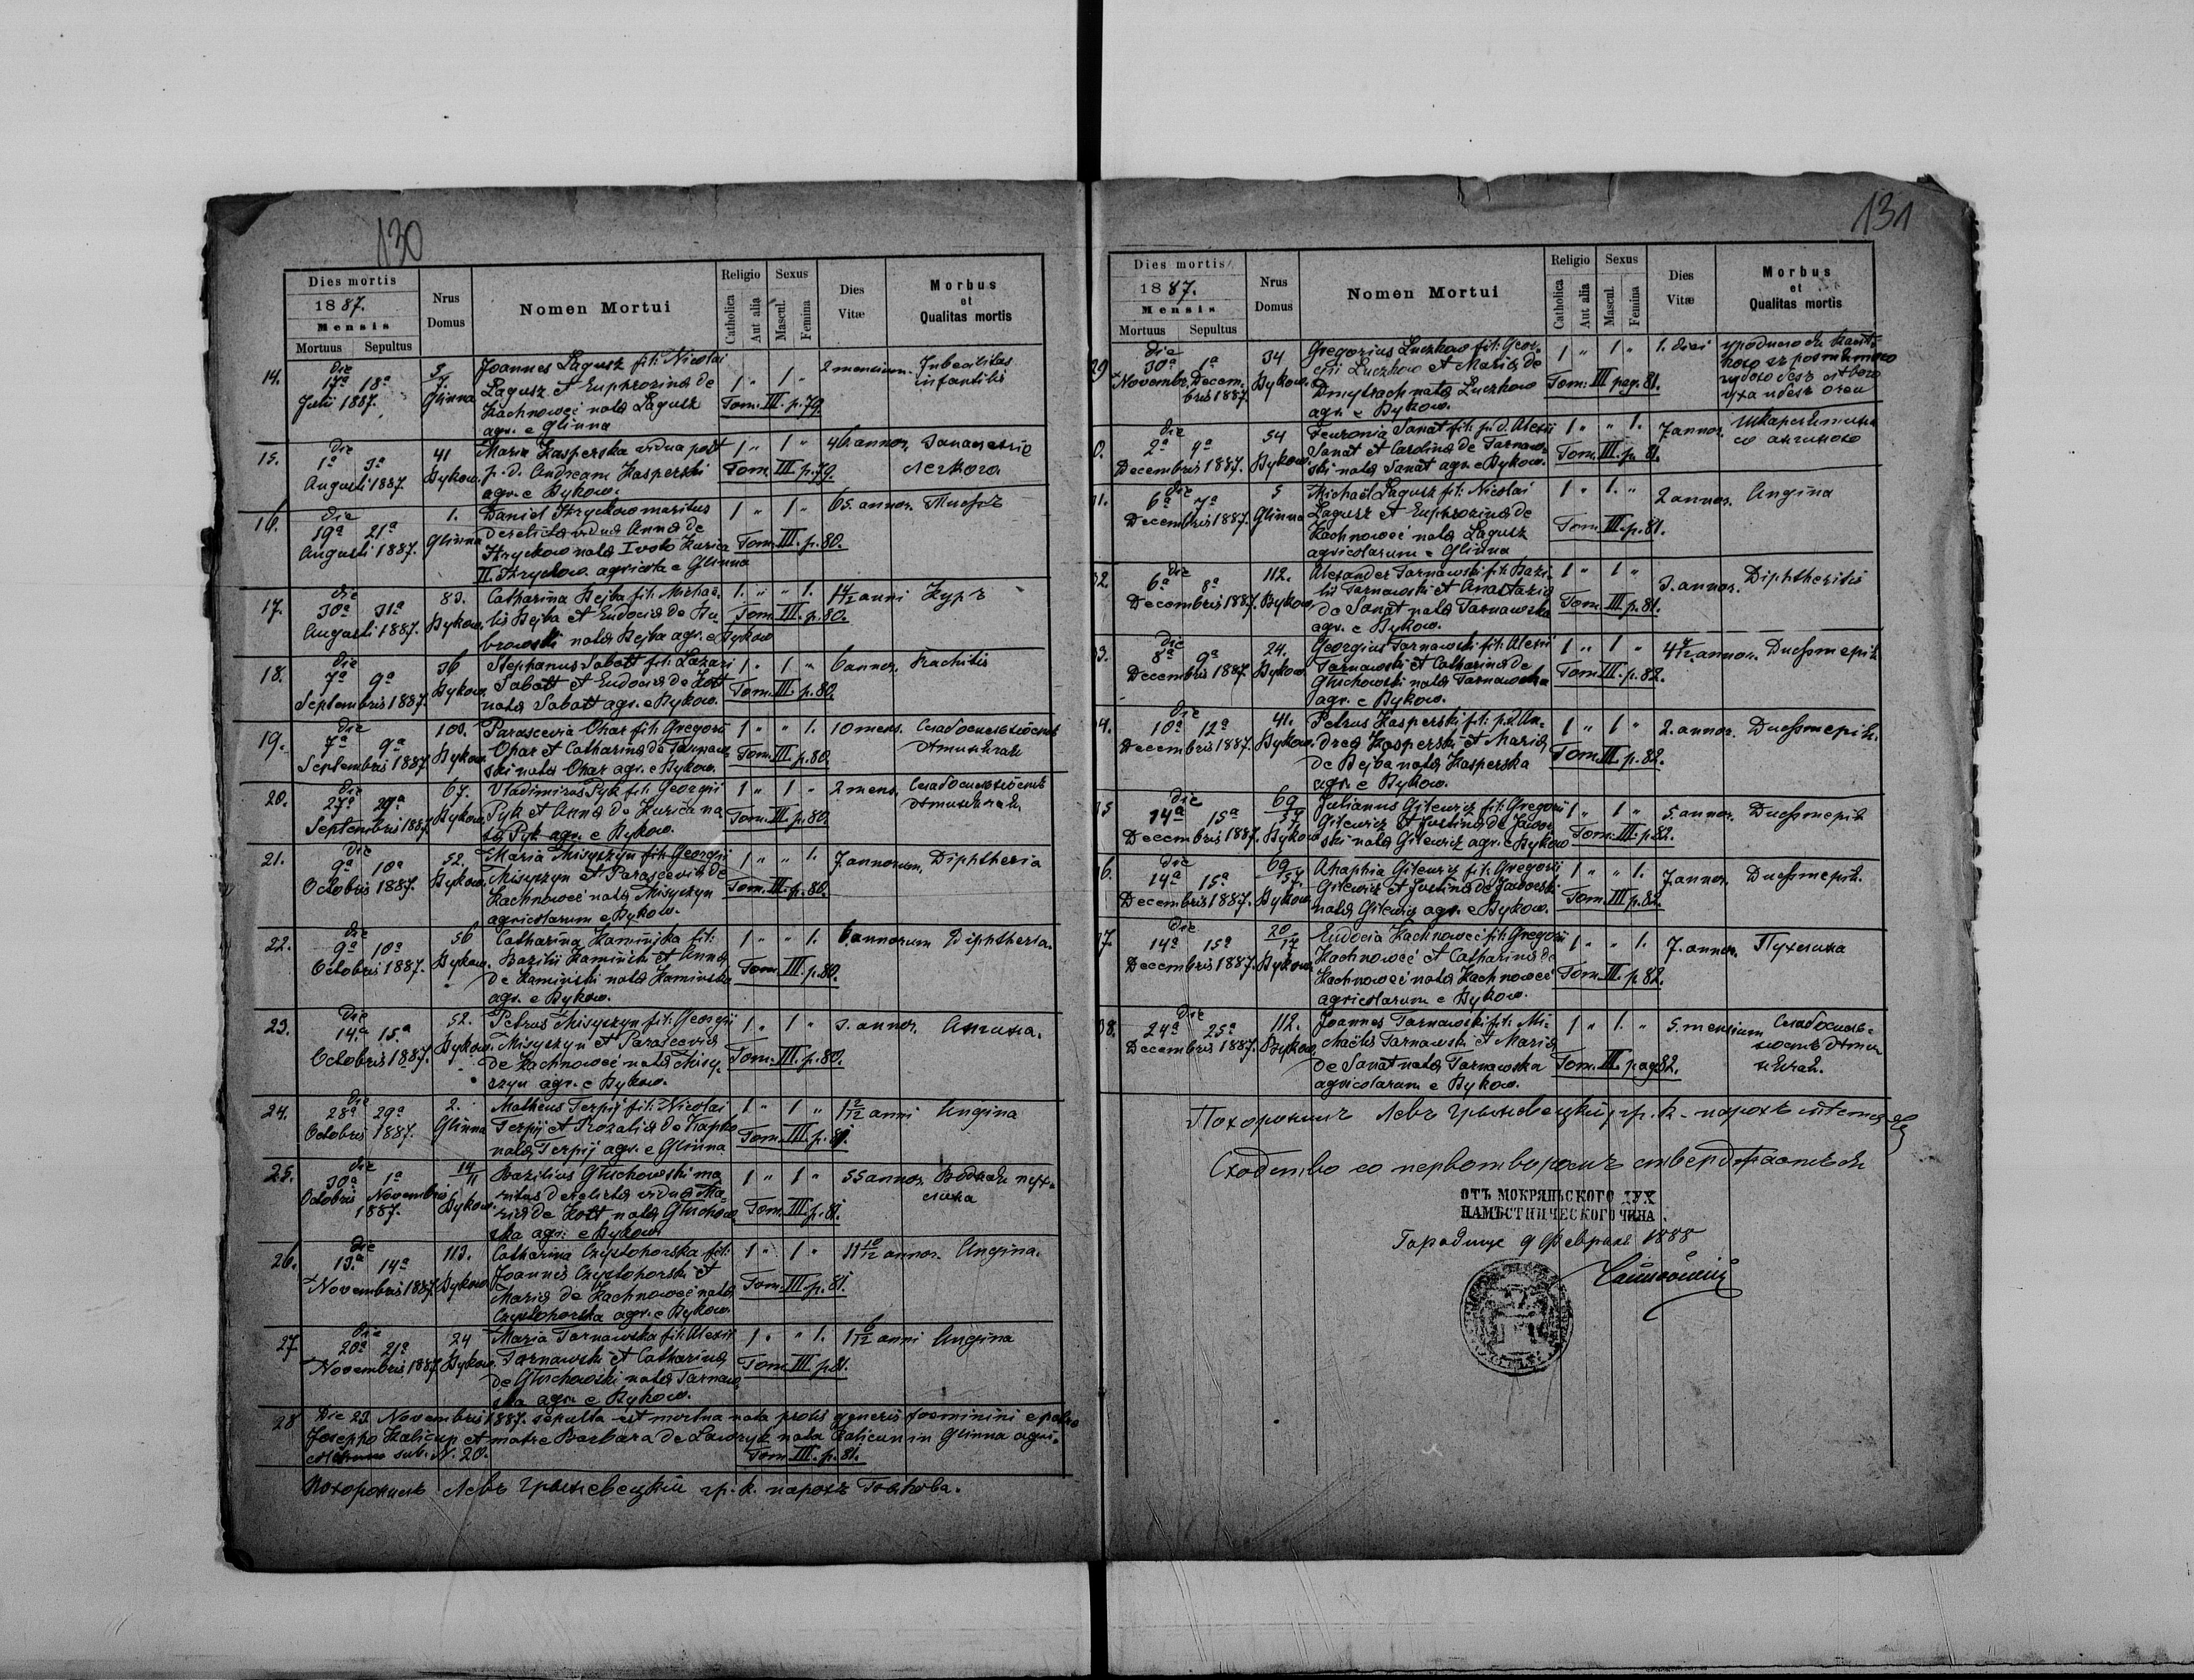 130
Dies mortis
1887.
Mensis
Mortuus Sepultus
Nrus Domus
Nomen Mortui
Religio
Catholica
Aut alia
Sexus
Mascul.
Femina
Dies Vitæ
Morbus et Qualitas mortis
14. die 17ª 18ª Julii 1887. Glinna
Joannes Lagusz fil: Nicolai
Lagusz et Euphrozina de
Kachnoweć nata Lagusz
agr. e Glinna
1 " 1 " Tom. III. p. 79.
2 mensium infantilis
15. die 1ª 3ª Augusti 1887 41 Bykow.
Maria Kasperska vidua post
p. d. Andream Kasperski
agr. e Bykow.
1 " 1 " Tom. III. p. 79.
46 annor.
16. die 19ª 21ª Augusti 1887. 1. Glinna
Daniel Hryckow maritus
derelicta vidua Anna de
Hryckow nata
II. Hryckow. agricola e Glinna
1 " 1 " Tom. III. p. 80.
65. annor.
17. die 30ª 31ª Augusti 1887. 83. Bykow.
Catharina Bejba fil: Michae-
lis Bejba et Eudocia de Du-
browski nata Bejba agr. e Bykow
1. " " 1. Tom. III. p. 80.
anni
18. die 7ª 9ª Septembris 1887. 36 Bykow.
Stephanus Sabatt fil: Lazari
Sabatt et Eudocia de Kott
nata Sabatt agr. e Bykow.
1 " 1 " Tom. III. p. 80.
6 annor. Rachitis
19. die 7ª 9ª Septembris 1887 100. Bykow
Parascevia Ohar fil: Gregorii
Ohar et Catharina de Tarnaw-
ski nata Ohar agr. e Bykow.
1 " " 1. Tom. III. p. 80.
10 mens.
20. die 27ª 29ª Septembris 1887. 67. Bykow.
Vladimirus Pyk fil: Georgii
Pyk et Anna de Kurica na-
ta Pyk agr. e Bykow.
1 " 1 " Tom. III. p. 80.
2 mens.
21. die 9ª 10ª Octobris 1887. 52. Bykow.
Maria Misyszyn fil: Georgii
Misyszyn et Parascevia de
Kachnoweć nata Misyszyn
agricolarum e Bykow.
1 " " 1. Tom. III. p. 80.
7 annorum, Diphtheria
22. die 9ª 10ª Octobris 1887. 56 Bykow.
Catharina Kamińska fil:
Bazilii Kamiński et Anna
de Kamiński nata Kamińska
agr. e Bykow.
1 " " 1. Tom. III. p. 80.
6 annorum Diphtheria.
23. die 14ª 15ª Octobris 1887. 52. Bykow.
Petrus Misyszyn fil: Georgii
Misyszyn et Parascevia
de Kachnoweć nata Misy-
szyn agr. e Bykow.
1 " 1 " Tom. III. p. 80.
3. annor. Ангина.
24. die 28ª 29ª Octobris 1887. 2. Glinna
Matheus Terpij fil: Nicolai
Terpij et Rozalia de
nata Terpij agr. e Glinna
1 " 1 " Tom. III. p. 81.
1 2/12 anni Angina
25. die 30ª 1ª Octobris Novembris 1887. 14/11 Bykow.
Bazilius Głuchowski ma-
ritus derelicta vidua Ma-
ria de Kott nata Głuchow-
ska agr. e Bykow.
1 " 1 " Tom. III. p. 81.
55 annor.
26. die 13ª 14ª Novembris 1887. 113. Bykow
Catharina Czystohorska fil:
Joannis Czystohorski et
Maria de Kachnoweć nata
Czystohorska agr. e Bykow.
1 " 1 " Tom. III. p. 81.
11 10/12 annor. Angina.
27 die 20ª 21ª Novembris 1887. 24 Bykow.
Maria Tarnawska fil: Alexii
Tarnawski et Catharina
de Głuchowski nata Tarnaw-
ska agr. e Bykow.
1 " " 1. Tom. III. p. 81.
1 6/12 anni Angina
28 Die 23 Novembris 1887. sepulta est mortua nata prolis generis foeminini e patre
Josepho Kalicun et matre Barbara de Lawryk nata Kalicun in Glinna agri-
colarum sub. N. 20. Tom. III. p. 81.
Похоронилъ Левъ Грыневецкій гр. к. парохъ Быкова.
131
Dies mortis
1887.
Mensis
Mortuus Sepultus
Nrus Domus
Nomen Mortui
Religio
Catholica
Aut alia
Sexus
Mascul.
Femina
Dies Vitæ
Morbus et Qualitas mortis
29 die 30ª 1ª Novembr. Decem- bris 1887 34 Bykow.
Gregorius Luczkow fil: Geor-
gii Luczkow et Maria de
Dmytrach nata Luczkow
agr. e Bykow.
1 " 1 " Tom. III pag. 81.
1. diei
0. die 2ª 4ª Decembris 1887. 54 Bykow.
Fewronia Sanat fil: p. d. Alexii
Sanat et Carolina de Tarnaw-
ski nata Sanat agr. e Bykow.
1 " " 1. Tom. III. p. 81.
7 annor.
31. die 6ª 7ª Decembris 1887. 5 Glinna
Michael Lagusz fil: Nicolai
Lagusz et Euphrozina de
Kachnoweć nata Lagusz
agricolarum e Glinna
1 " 1. " Tom. III. p. 81.
2 annor. Angina
32. die 6ª 8ª Decembris 1887. 112. Bykow.
Alexander Tarnawski fil: Bazi-
lii Tarnawski et Anastazia
de Sanat nata Tarnawska
agr. e Bykow.
1 " 1 " Tom. III. p. 81.
3. annor. Diphtheritis
33. die 8ª 9ª Decembris 1887. 24. Bykow
Georgius Tarnawski fil: Alexii
Tarnawski et Catharina de
Głuchowski nata Tarnawska
agr. e Bykow.
1 " 1 " Tom. III. p. 82.
annor. Дифтерія
4. die 10ª 12ª Decembris 1887. 41. Bykow.
Petrus Kasperski fil: p. d. An-
drea Kasperski et Maria
de Bejba nata Kasperska
agr. e Bykow.
1 " 1 " Tom. III. p. 82.
2. annor. Дифтерія.
35 die 14ª 15ª Decembris 1887. 69/57 Bykow
Julianus Gilewicz fil: Gregorii
Gilewicz et Justina de Jawor-
ski nata Gilewicz agr. e Bykow
1 " 1 " Tom. III. p. 82.
5. annor. Дифтерія
6. die 14ª 15ª Decembris 1887. 69/57. Bykow.
Ahaphia Gilewicz fil: Gregorii
Gilewicz et Justina de Jaworski
nata Gilewicz agr. e Bykow.
1 " " 1. Tom. III p. 82.
7 annor. Дифтерія.
7. die 14ª 15ª Decembris 1887. 20/17 Bykow.
Eudocia Kachnoweć fil: Gregorii
Kachnoweć et Catharina de
Kachnoweć nata Kachnoweć
agricolarum e Bykow.
1 " " 1. Tom. III. p. 82.
7. annor. Пухлина
38. die 24ª 25ª Decembris 1887. 112. Bykow.
Joannes Tarnawski fil: Mi-
chaëlis Tarnawski et Maria
de Sanat nata Tarnawska
agricolarum e Bykow.
1 " 1. " Tom. III. pag. 82.
5. mensium
Похоронилъ Левъ Грыневецкій гр. к. парохъ
Сходство со первотворомъ
ОТЪ МОКРЯНЬСКОГО ДУХ
НАМѢСТНИЧЕСКОГО ЧИНА
Городище 9 Февраля 1888